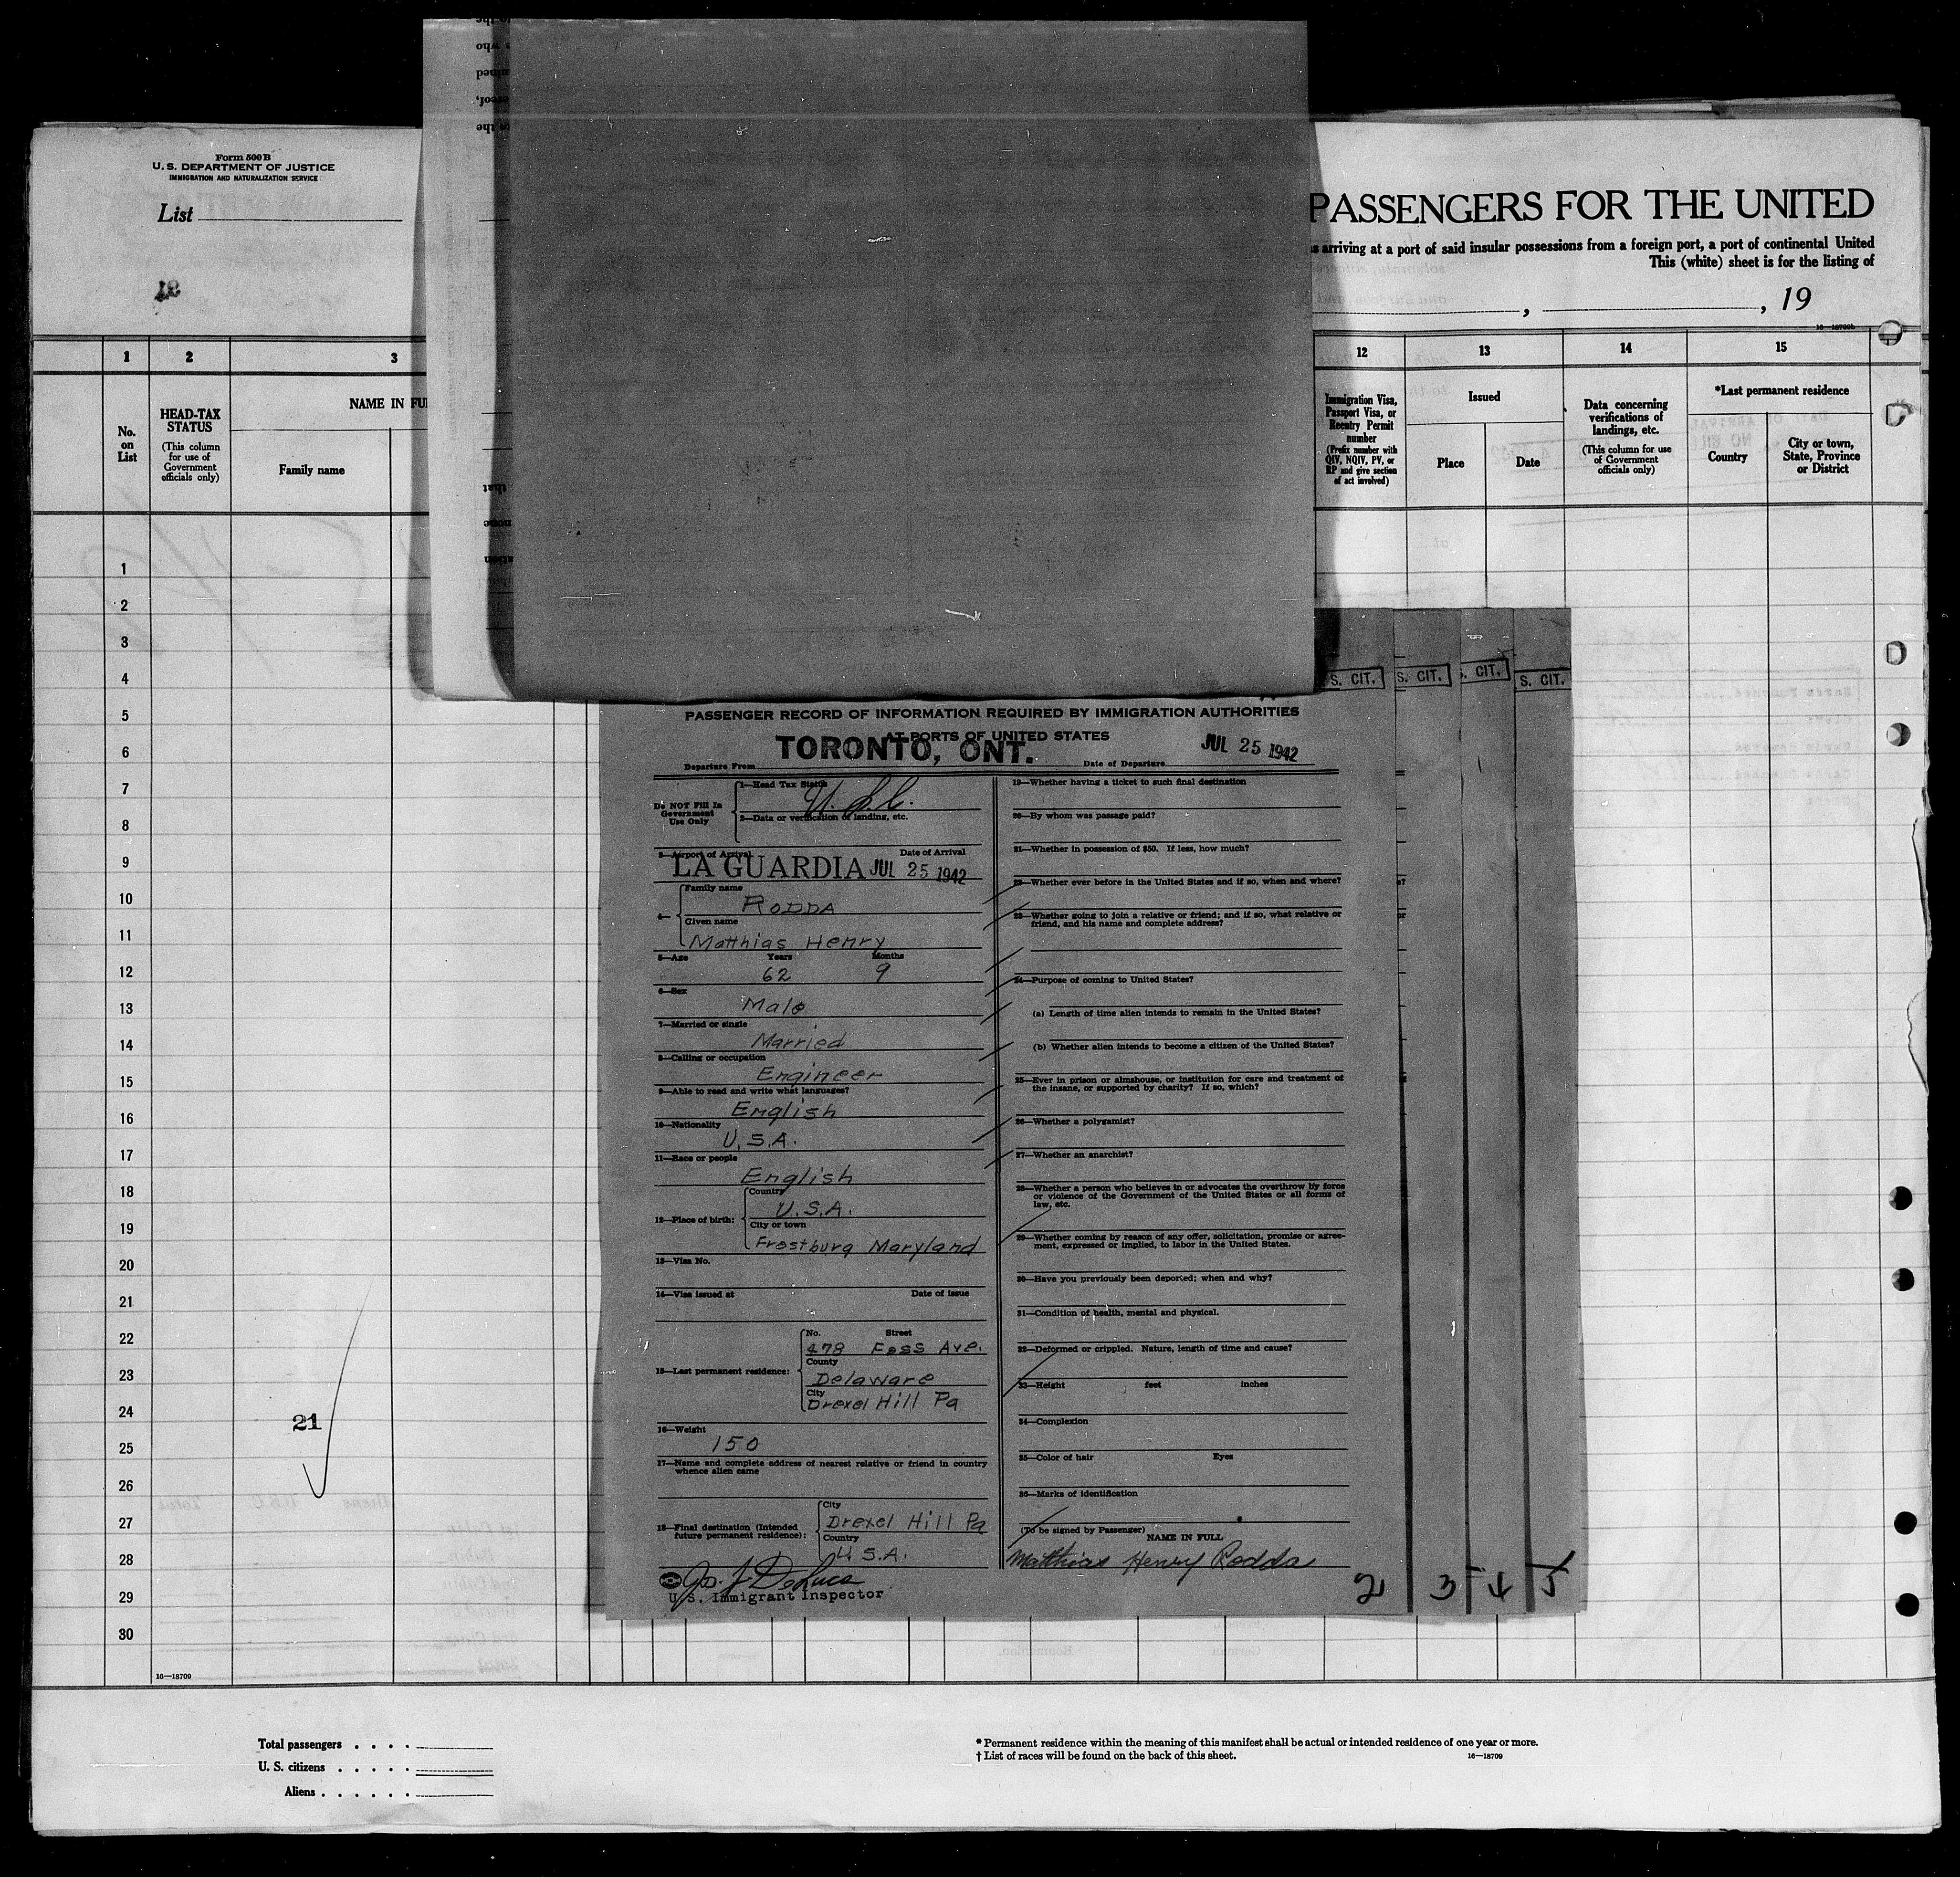 Form 500 B
U. S. DEPARTMENT OF JUSTICE
IMMIGRATION AND NATURALIZATION SERVICE
List
PASSENGERS FOR THE UNITED
arriving at a port of said insular possessions from a foreign port, a port of continental United
This (white) sheet is for the listing of
, , 19
1 2 3 12 13 14 15
No. on List
HEAD-TAX STATUS
(This column for use of Government officials only)
NAME IN FU
Family name
Immigration Visa, Passport Visa, or Reentry Permit number
(Prefix number with QIV, NQIV, PV, or RP and give section of act involved)
Issued
Place
Date
Data concerning verifications of landings, etc.
(This column for use of Government officials only)
*Last permanent residence
Country
City or town, State, Province or District
1
2
3
4
5
6
7
8
9
10
11
12
13
14
15
16
17
18
19
20
21
22
23
24
25
26
27
28
29
30
21
S. CIT.
S. CIT.
S. CIT.
S. CIT.
PASSENGER RECORD OF INFORMATION REQUIRED BY IMMIGRATION AUTHORITIES
AT PORTS OF UNITED STATES
Departure From TORONTO, ONT.
Date of Departure JUL 25 1942
Do NOT Fill In Government Use Only
1—Head Tax Status
U. S. C.
2—Data or verification of landing, etc.
3—Airport of Arrival
Date of Arrival
LA GUARDIA JUL 25 1942
4—
Family name
RODDA
Given name
Matthias Henry
5—Age Years Months
62 9
6—Sex
Male
7—Married or single
Married
8—Calling or occupation
Engineer
9—Able to read and write what languages?
English
10—Nationality
U.S.A.
11—Race or people
English
12—Place of birth:
Country
U.S.A.
City or town
Frostburg Maryland
13—Visa No.
14—Visa issued at Date of issue
15—Last permanent residence:
No. Street
478 Foss Ave.
County
Delaware
City
Drexel Hill Pa
16—Weight
150
17—Name and complete address of nearest relative or friend in country
whence alien came
18—Final destination (Intended
future permanent residence):
City
Drexel Hill Pa
Country
U S.A.
U. S. Immigrant Inspector
19—Whether having a ticket to such final destination
20—By whom was passage paid?
21—Whether in possession of $50. If less, how much?
22—Whether ever before in the United States and if so, when and where?
23—Whether going to join a relative or friend; and if so, what relative or
friend, and his name and complete address?
24—Purpose of coming to United States?
(a) Length of time alien intends to remain in the United States?
(b) Whether alien intends to become a citizen of the United States?
25—Ever in prison or almshouse, or institution for care and treatment of
the insane, or supported by charity? If so, which?
26—Whether a polygamist?
27—Whether an anarchist?
28—Whether a person who believes in or advocates the overthrow by force
or violence of the Government of the United States or all forms of
law, etc.
29—Whether coming by reason of any offer, solicitation, promise or agree-
ment, expressed or implied, to labor in the United States.
30—Have you previously been deported; when and why?
31—Condition of health, mental and physical.
32—Deformed or crippled. Nature, length of time and cause?
33—Height feet inches
34—Complexion
35—Color of hair Eyes
36—Marks of identification
(To be signed by Passenger) NAME IN FULL
Matthias Henry Rodda
2 3 4 5
16—18709
Total passengers . . . .
U. S. citizens . . . . .
Aliens . . . . . .
* Permanent residence within the meaning of this manifest shall be actual or intended residence of one year or more.
† List of races will be found on the back of this sheet.
16—18709